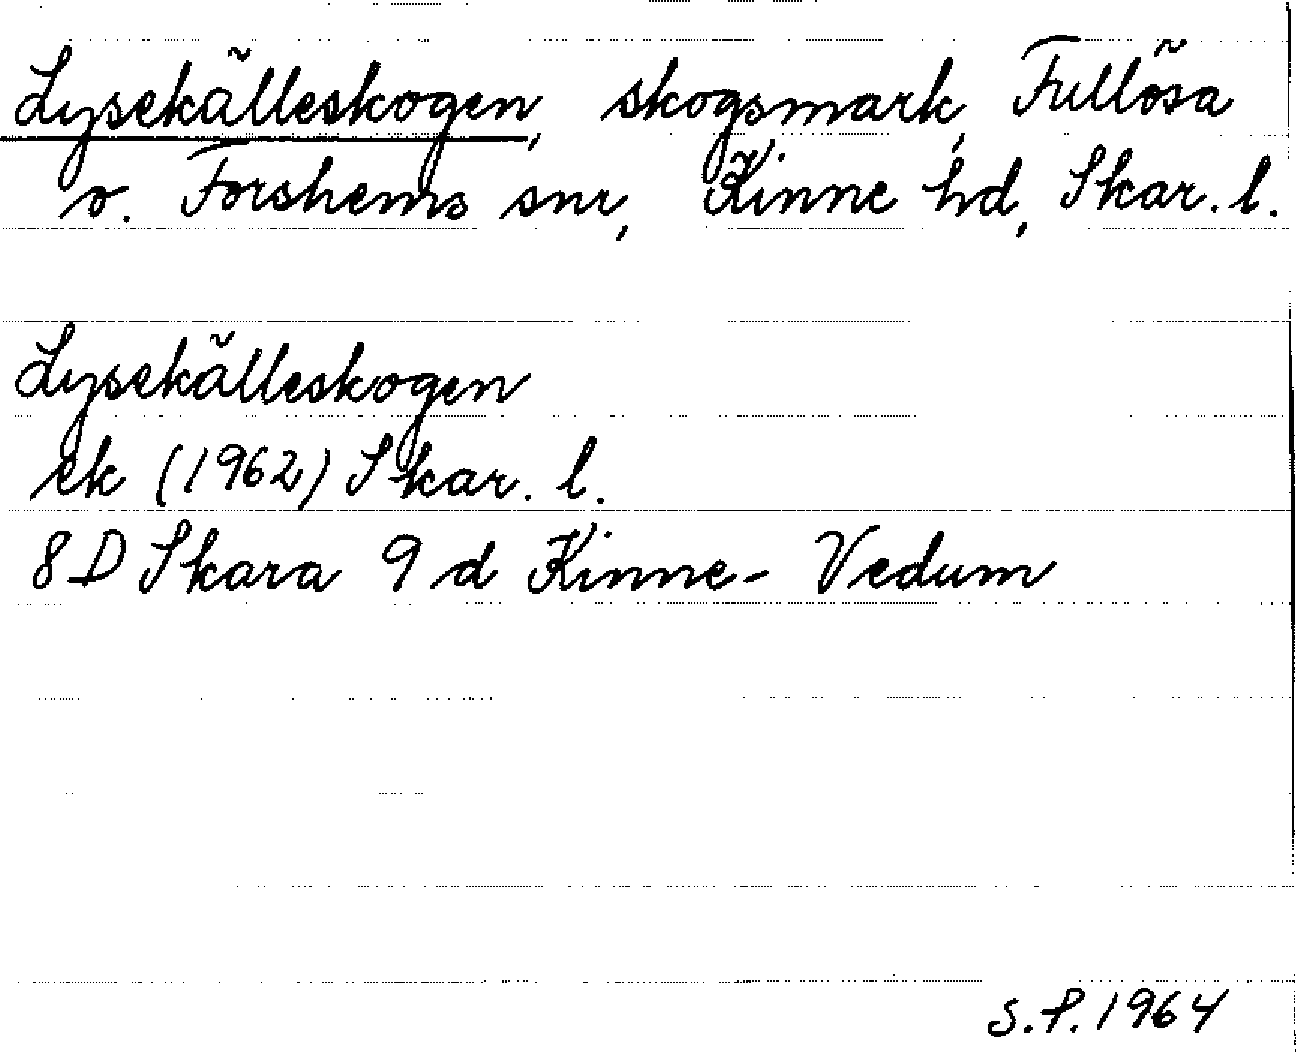 Lysekälleskogen, skogsmark, Fullösa
o. Forshems snr, Kinne hd, Skar. l.
Lysekälleskogen
ek (1962) Skar. l.
8D Skara 9 d Kinne-Vedum
S.P. 1964